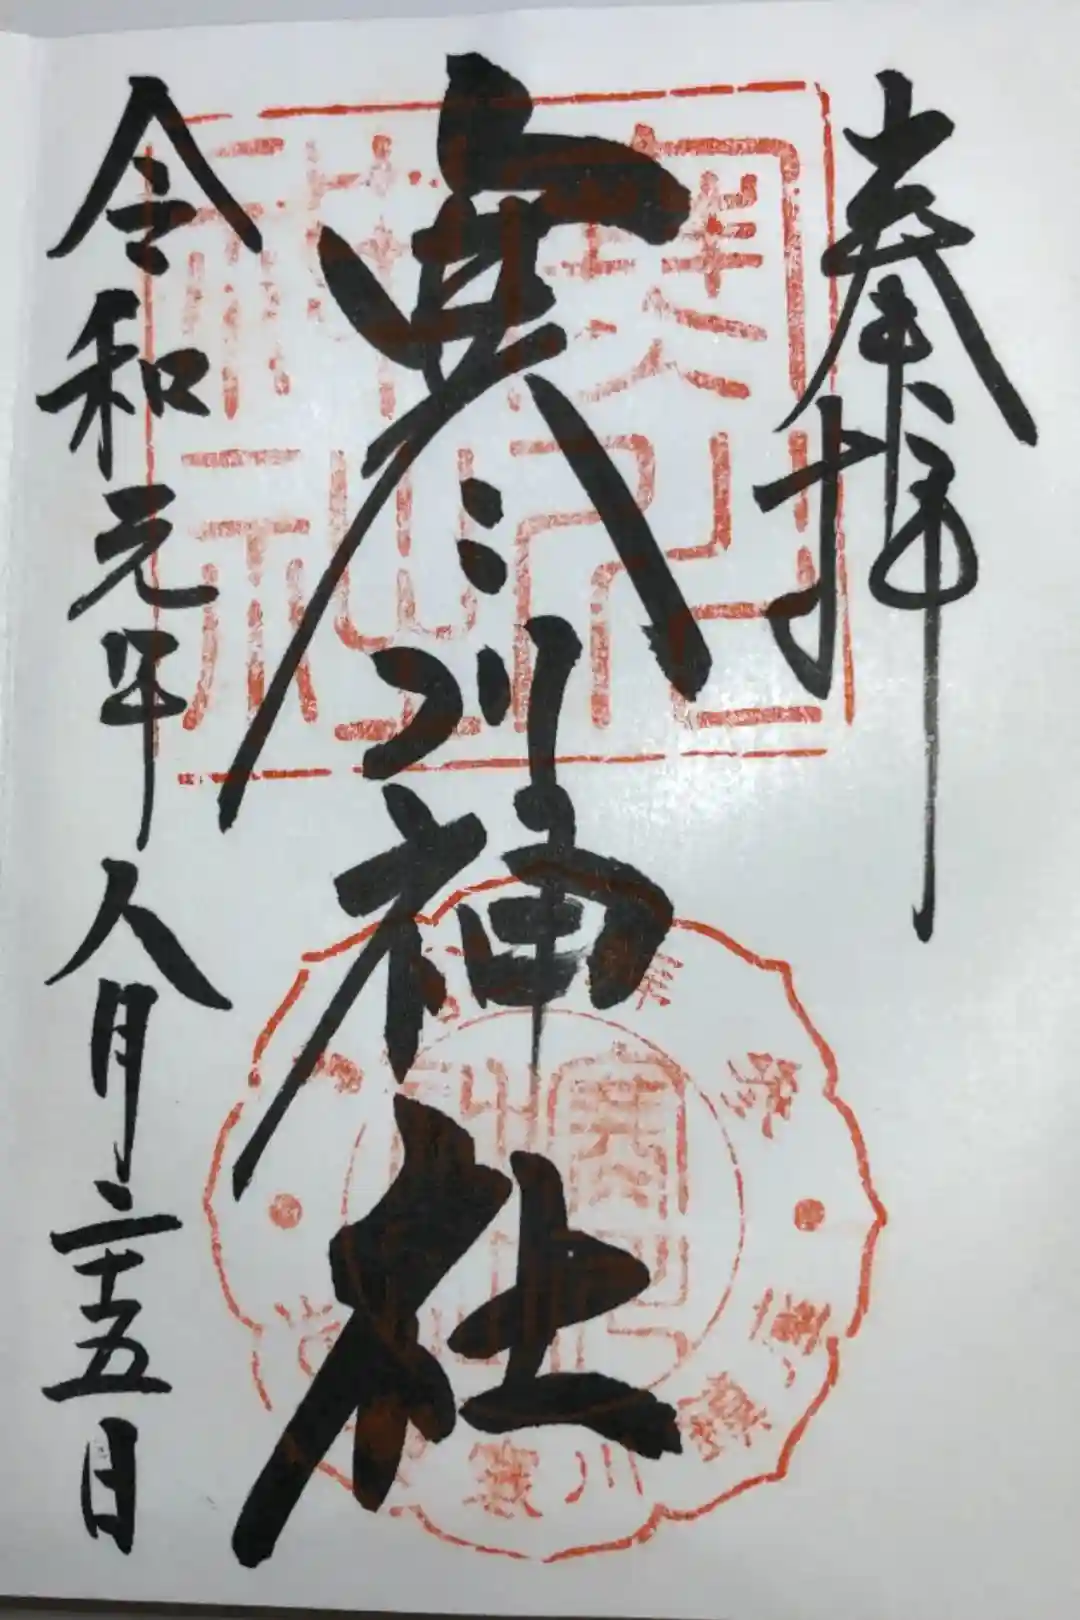 奉拝
寒川神社
令和元年八月二十五日
寒川神社